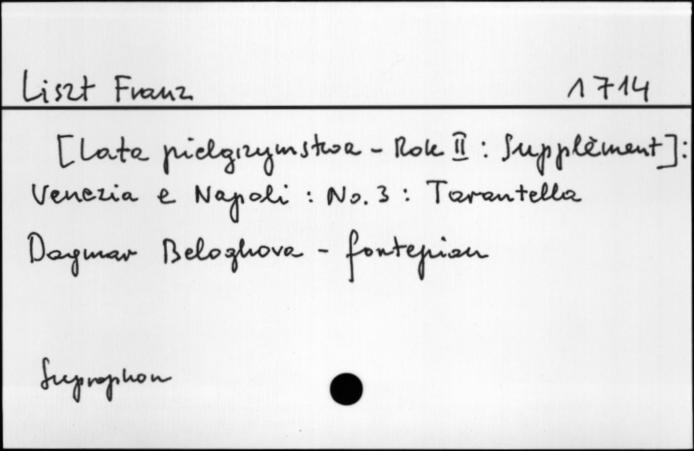 Liszt Franz 1714
[Lata pielgrzymstwa - Rok II : Supplèment]:
Venezia e Napoli : No. 3 : Tarantella
Dagmar Beloghova - fortepian
Supraphon